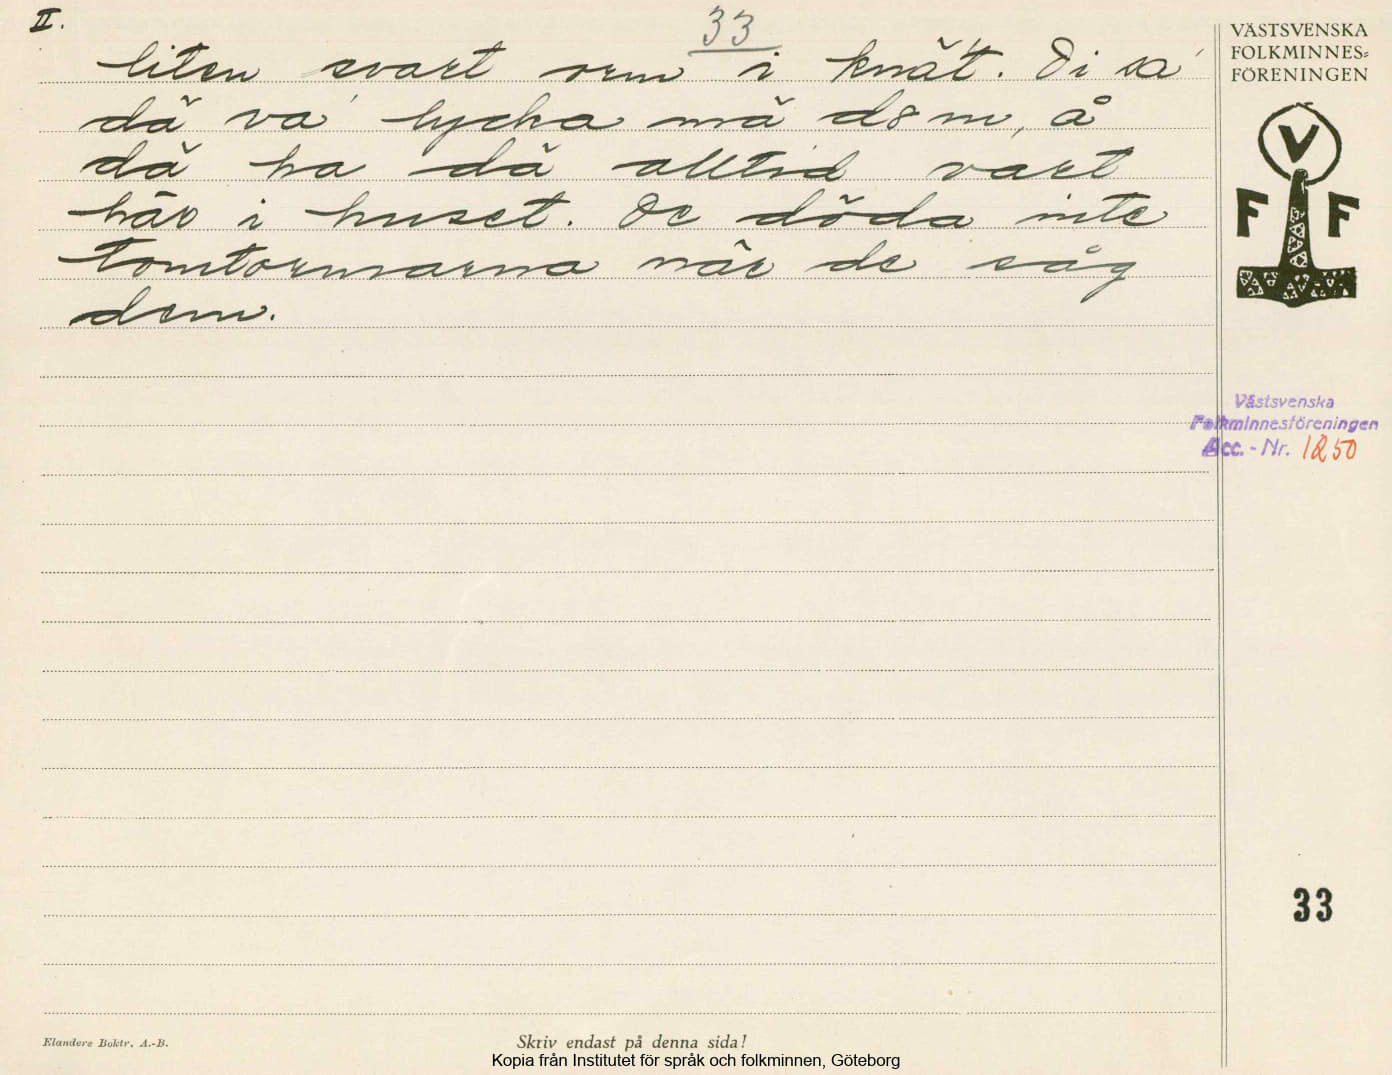 II.
33
liten svart orm i knät. Di sa'
dä va' lycka mä dem, å
dä ha dä alltid vart
här i huset. De döda inte
tomtormarna när de såg
dem.
VÄSTSVENSKA
FOLKMINNES=
FÖRENINGEN
V
F F
Västsvenska
Folkminnesföreningen
Acc. - Nr. 1250
33
Elanders Boktr. A.-B.
Skriv endast på denna sida!
Kopia från Institutet för språk och folkminnen, Göteborg